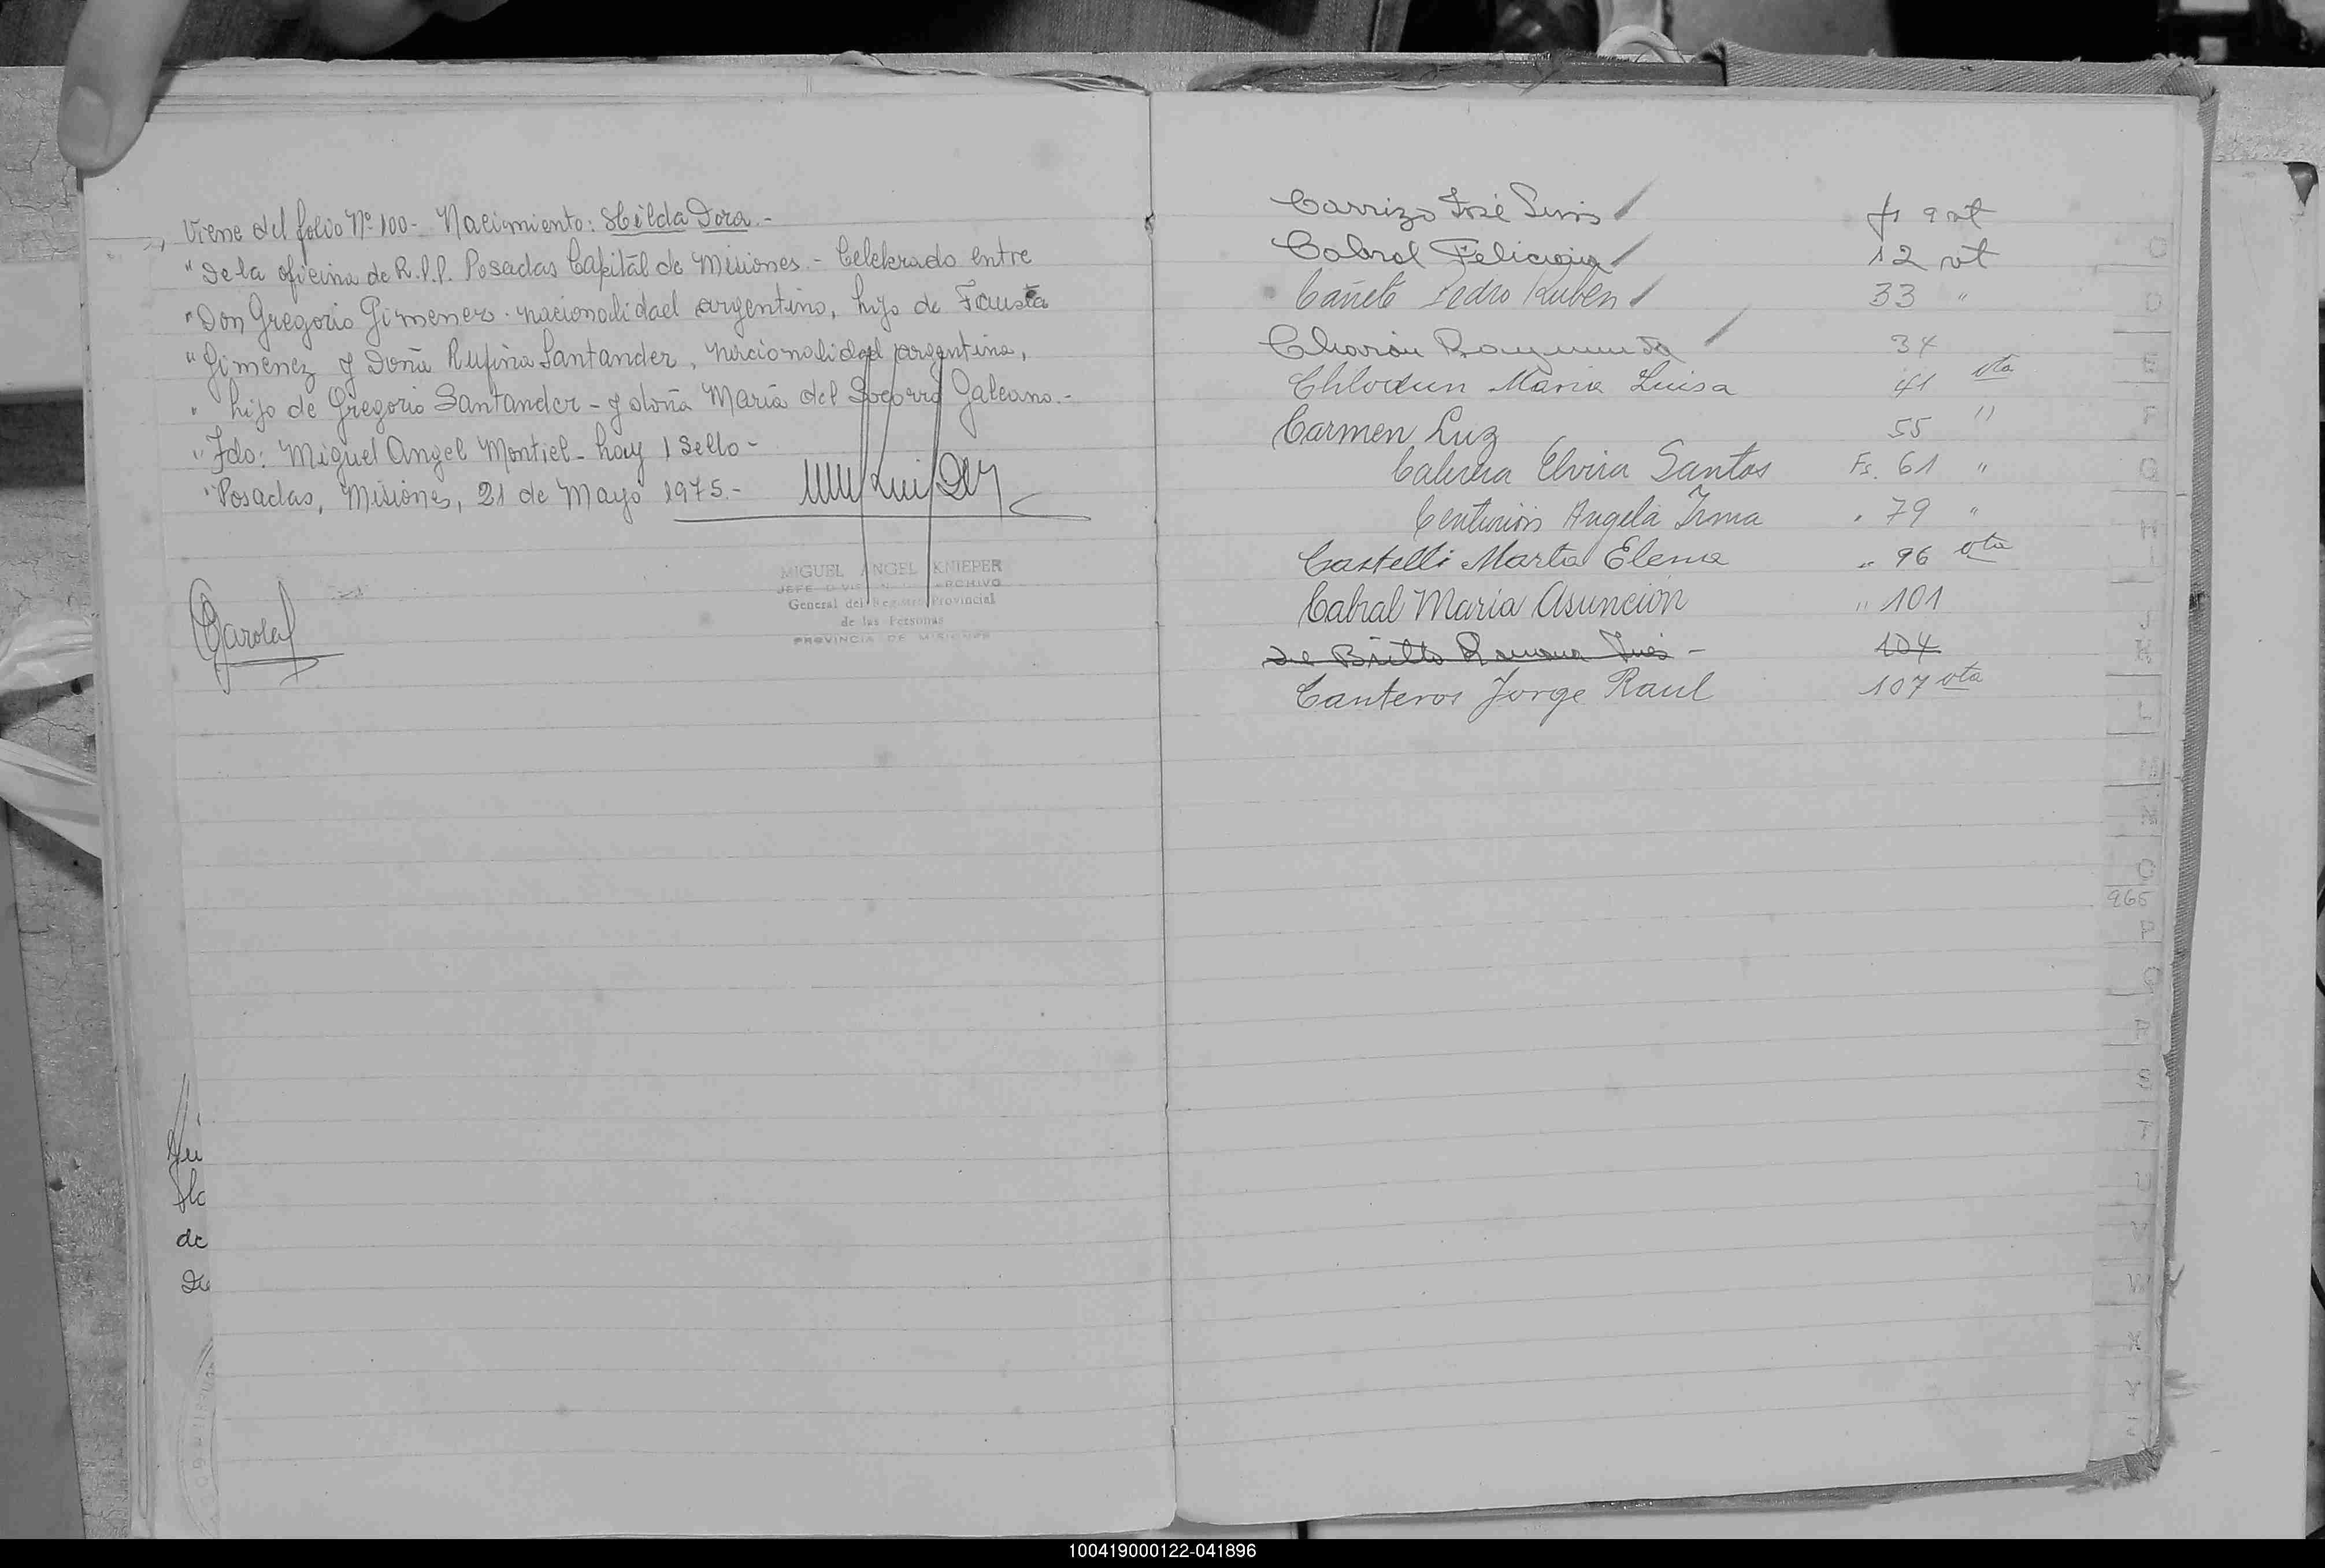 Viene del folio Nº 100- Nacimiento: Hilda Dora.-
"De la oficina de R.P.P. Posadas Capital de Misiones.- Celebrado entre
"Don Gregorio Gimenez. nacionalidad argentino, hijo de Fausta
"Gimenez y Doña Rufina Santander, nacionalidad argentina,
" hijo de Gregorio Santander - y doña María del Socorro Galeano.-
"Fdo: Miguel Angel Montiel - hay 1 sello -
"Posadas, Misiones, 21 de Mayo 1975.-
MIGUEL ANGEL KNIEPER
JEFE DIVISION ARCHIVO
General del Registro Provincial
de las Personas
PROVINCIA DE MISIONES
de
Carrizo José Luis fs 9 vt
Cabral Feliciana 12 vt
Cañete Pedro Ruben 33 "
Raymunda 34
Maria Luisa 41 vta
Carmen Luz 55 "
Cabrera Elvira Santos Fs. 61 "
Centurion Angela Irma " 79 "
Castelli Marta Elena " 96 vta
Cabral María Asunción " 101
de Britto Ramona Inés - 104
Canteros Jorge Raul 107 vta
965
100419000122-041896